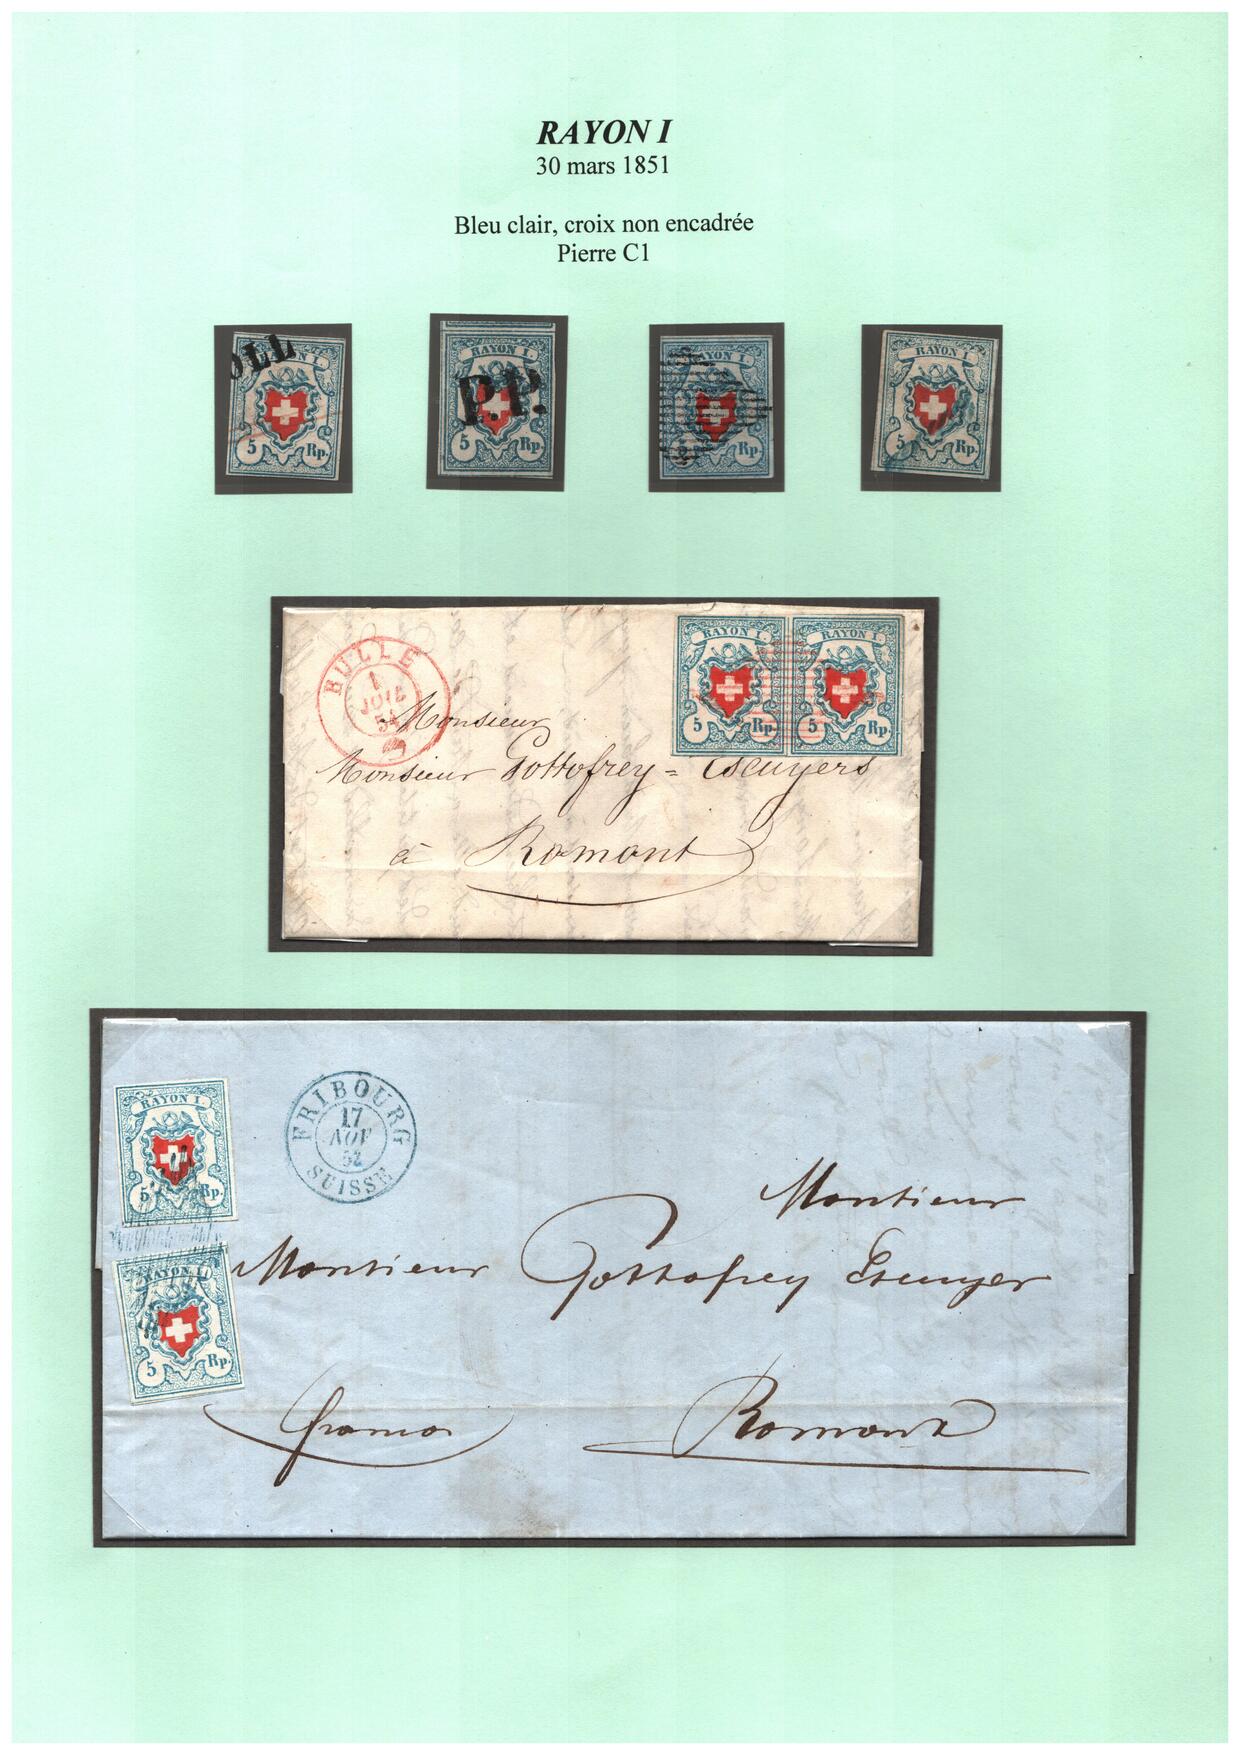 RAYON I
30 mars 1851
Bleu clair, croix non encadrée
Pierre C1
OLL
RAYON I.
5 Rp.
RAYON I.
P.P.
5 Rp.
RAYON I.
Rp.
RAYON I.
5 Rp.
BULLE
1
54
RAYON I. RAYON I.
5 Rp. 5 Rp.
Monsieur
Monsieur Gottofrey = Escuyers
à Romont
RAYON I.
5 Rp.
FRIBOURG
17
NOV
52
SUISSE
RAYON I.
5 Rp.
Monsieur
Monsieur Gottofrey Escuyer
franco Romont